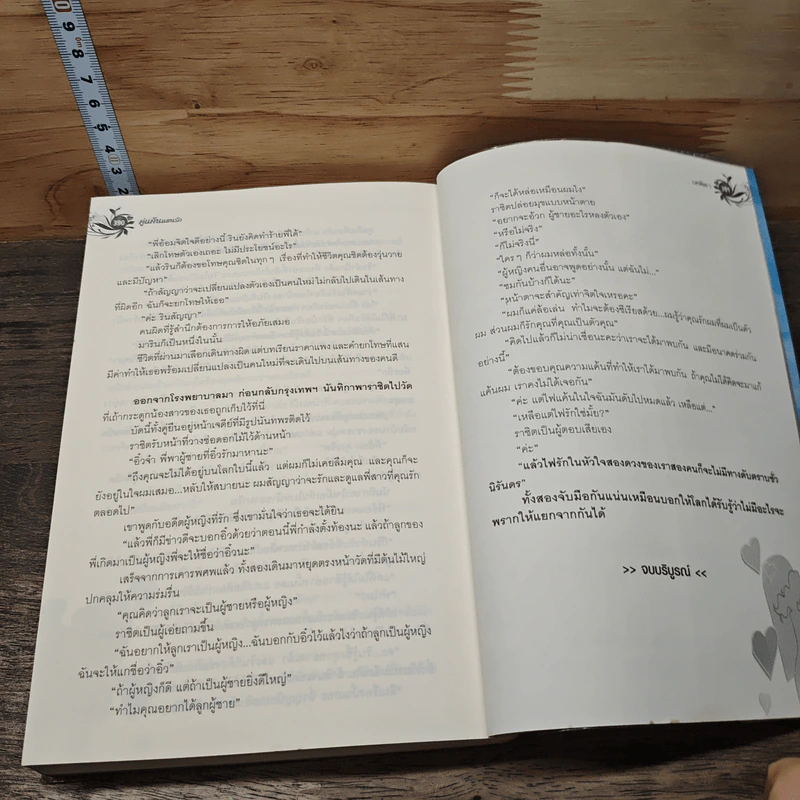 9
8
7
6
5
4
3
2
390
คู่แค้นแสนรัก
"พี่อ้อมจิตใจดีอย่างนี้ รินยังคิดทำร้ายพี่ได้"
"เลิกโทษตัวเองเถอะ ไม่มีประโยชน์อะไร"
"แล้วรินก็ต้องขอโทษคุณชิตในทุกๆ เรื่องที่ทำให้ชีวิตคุณชิตต้องวุ่นวาย
และมีปัญหา"
"ถ้าสัญญาว่าจะเปลี่ยนแปลงตัวเองเป็นคนใหม่ ไม่กลับไปเดินในเส้นทาง
ที่ผิดอีก ฉันก็จะยกโทษให้เธอ"
"ค่ะ รินสัญญา"
คนผิดที่รู้สำนึกต้องการการให้อภัยเสมอ
มารินก็เป็นหนึ่งในนั้น
ชีวิตที่ผ่านมาเลือกเดินทางผิด แต่บทเรียนราคาแพง และคำยกโทษที่แสน
มีค่าทำให้เธอพร้อมเปลี่ยนแปลงเป็นคนใหม่ที่จะเดินไปบนเส้นทางของคนดี
ออกจากโรงพยาบาลมา ก่อนกลับกรุงเทพฯ นันทิกาพาราชิตไปวัด
ที่เถ้ากระดูกน้องสาวของเธอถูกเก็บไว้ที่นี่
บัดนี้ทั้งคู่ยืนอยู่หน้าเจดีย์ที่มีรูปนันทพรติดไว้
ราชิตรับหน้าที่วางช่อดอกไม้ไว้ด้านหน้า
"อิ๋วจ๋า พี่พาผู้ชายที่อิ๋วรักมาหานะ"
"ถึงคุณจะไม่ได้อยู่บนโลกใบนี้แล้ว แต่ผมก็ไม่เคยลืมคุณ และคุณก็จะ
ยังอยู่ในใจผมเสมอ...หลับให้สบายนะ ผมสัญญาว่าจะรักและดูแลพี่สาวที่คุณรัก
ตลอดไป"
เขาพูดกับอดีตผู้หญิงที่รัก ซึ่งเขามั่นใจว่าเธอจะได้ยิน
"แล้วพี่ก็มีข่าวดีจะบอกอิ๋วด้วยว่าตอนนี้พี่กำลังตั้งท้องนะ แล้วถ้าลูกของ
พี่เกิดมาเป็นผู้หญิงพี่จะให้ชื่อว่าอิ๋วนะ"
เสร็จจากการเคารพศพแล้ว ทั้งสองเดินมาหยุดตรงหน้าวัดที่มีต้นไม้ใหญ่
ปกคลุมให้ความร่มรื่น
"คุณคิดว่าลูกเราจะเป็นผู้ชายหรือผู้หญิง"
ราชิตเป็นผู้เอ่ยถามขึ้น
"ฉันอยากให้ลูกเราเป็นผู้หญิง...ฉันบอกกับอิ๋วไว้แล้วไงว่าถ้าลูกเป็นผู้หญิง
ฉันจะให้แกชื่อว่าอิ๋ว"
"ถ้าผู้หญิงก็ดี แต่ถ้าเป็นผู้ชายยิ่งดีใหญ่"
"ทำไมคุณอยากได้ลูกผู้ชาย"
"ก็จะได้หล่อเหมือนผมไง"
ราชิตปล่อยมุขแบบหน้าตาย
"อยากจะอ้วก ผู้ชายอะไรหลงตัวเอง"
"หรือไม่จริง"
"ก็ไม่จริงนี่"
"ใครๆ ก็ว่าผมหล่อทั้งนั้น"
"ผู้หญิงคนอื่นอาจพูดอย่างนั้น แต่ฉันไม่..."
"ชมกันบ้างก็ได้นะ"
"หน้าตาจะสำคัญเท่าจิตใจเหรอคะ"
"ผมก็แค่ล้อเล่น ทำไมจะต้องซีเรียสด้วย...ผมรู้ว่าคุณรักผมที่ผมเป็นตัว
ผม ส่วนผมก็รักคุณที่คุณเป็นตัวคุณ"
"คิดไปแล้วก็ไม่น่าเชื่อนะคะว่าเราจะได้มาพบกัน และมีอนาคตร่วมกัน
อย่างนี้"
"ต้องขอบคุณความแค้นที่ทำให้เราได้มาพบกัน ถ้าคุณไม่ได้คิดจะมาแก้
แค้นผม เราคงไม่ได้เจอกัน"
"ค่ะ แต่ไฟแค้นในใจฉันมันดับไปหมดแล้ว เหลือแต่..."
"เหลือแต่ไฟรักใช่มั้ย?"
ราชิตเป็นผู้ตอบเสียเอง
"ค่ะ"
"แล้วไฟรักในหัวใจสองดวงของเราสองคนก็จะไม่มีทางดับตราบชั่ว
นิรันดร"
ทั้งสองจับมือกันแน่นเหมือนบอกให้โลกได้รับรู้ว่าไม่มีอะไรจะ
พรากให้แยกจากกันได้
>> จบบริบูรณ์ <<